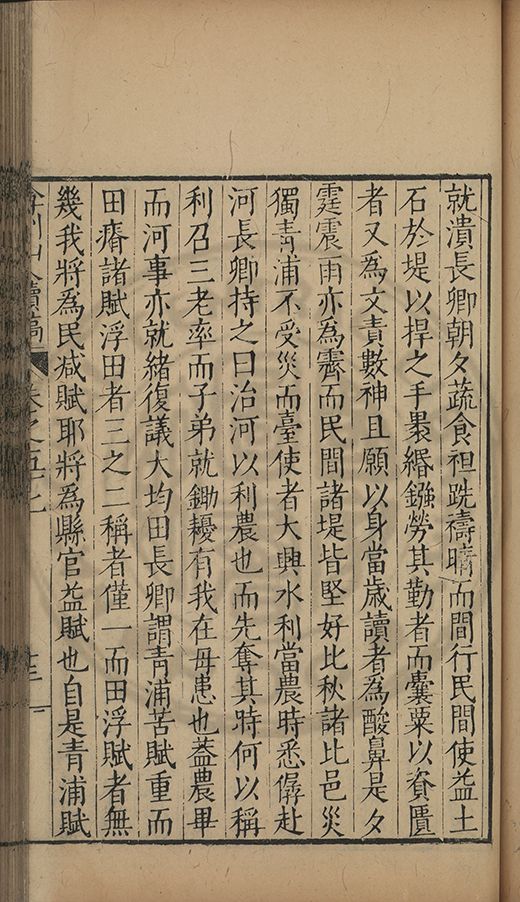 就潰長卿朝夕蔬食袒跣禱晴而間行民間使益土
石於堤以捍之手畚緡鏹勞其勤者而囊粟以資匱
者又為文責數神且願以身當歲讀者為酸鼻是夕
霆震雨亦為霽而民間諸堤皆堅好比秋諸比邑災
獨青浦不受災而臺使者大興水利當農時悉僝赴
河長卿持之曰治河以利農也而先奪其時何以稱
利召三老率而子弟就鋤耰有我在毋患也葢農畢
而河事亦就緒復議大均田長卿謂青浦苦賦重而
田瘠諸賦浮田者三之二稱者僅一而田浮賦者無
幾我將為民减賦耶將為縣官益賦也自是青浦賦